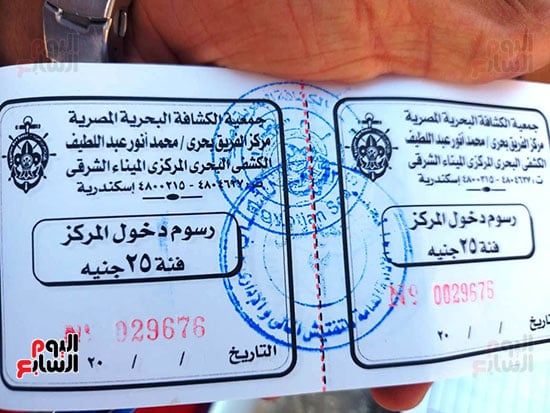 جمعية الكشافة البحرية المصرية
مركز الفريق بحرى / محمد أنور عبد اللطيف
الكشفى البحرى المركزى الميناء الشرقى
٤٨٠٠٢١٥ إسكندرية
رسوم دخول المركز
فئة ٢٥ جنيه
Nº 0029676
التاريخ / / ٢٠
جمعية الكشافة البحرية المصرية
مركز الفريق بحرى / محمد أنور عبد اللطيف
الكشفى البحرى المركزى الميناء الشرقى
٤٨٠٠٢١٥ إسكندرية
رسوم دخول المركز
فئة ٢٥ جنيه
Nº 029676
التاريخ / / ٢٠
Egyptian
المالى والإدارى
اليوم السابع
اليوم السابع
اليوم السابع